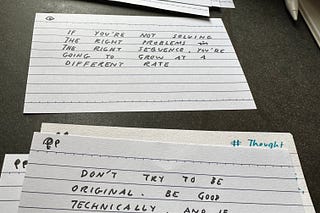 IF YOU'RE NOT SOLVING
THE RIGHT PROBLEMS IN
THE RIGHT SEQUENCE, YOU'RE
GOING TO GROW AT A
DIFFERENT RATE
# Thought
DON'T TRY TO BE
ORIGINAL. BE GOOD
TECHNICALLY. AND IF